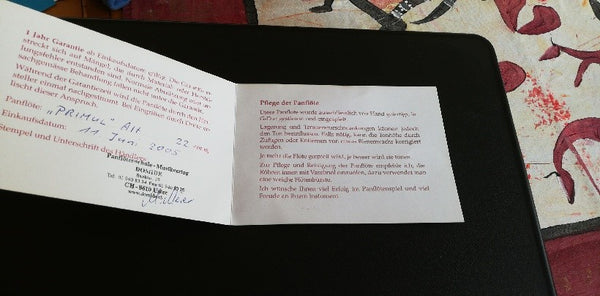 1 Jahr Garantie ab Einkaufsdatum gültig. Die Garantie er-
streckt sich auf Mängel, die durch Material- oder
entstanden sind. Normale Abnützung und un-
sachgemässe Behandlung fallen nicht unter die Garantie.
Während der Garantiezeit wird die Panflöte durch den
steller einmal nachgestimmt. Bei Eingriffen durch Dritte er-
lischt dieser Anspruch.
Panflöte: „PRIMUL" Alt 22
Einkaufsdatum: 11 Juni 2005
Stempel und Unterschrift des Händlers:
Panflötenschule - Musikverlag
CH - 8610 Uster
Pflege der Panflöte
Diese Panflöte wurde ausschliesslich von Hand gefertigt, in
und eingespielt.
Lagerung und Temperaturschwankungen können jedoch
den Ton beeinflussen. Falls nötig, kann die Tonhöhe durch
Zufügen oder Entfernen von etwas Bienenwachs korrigiert
werden.
Je mehr die Flöte gespielt wird, je besser wird sie tönen.
Zur Pflege und Reinigung der Panflöte empfehle ich, die
Röhren innen mit einzuölen, dazu verwendet man
eine weiche Flötenbürste.
Ich wünsche Ihnen viel Erfolg im Panflötenspiel und viel
Freude an Ihrem Instrument.